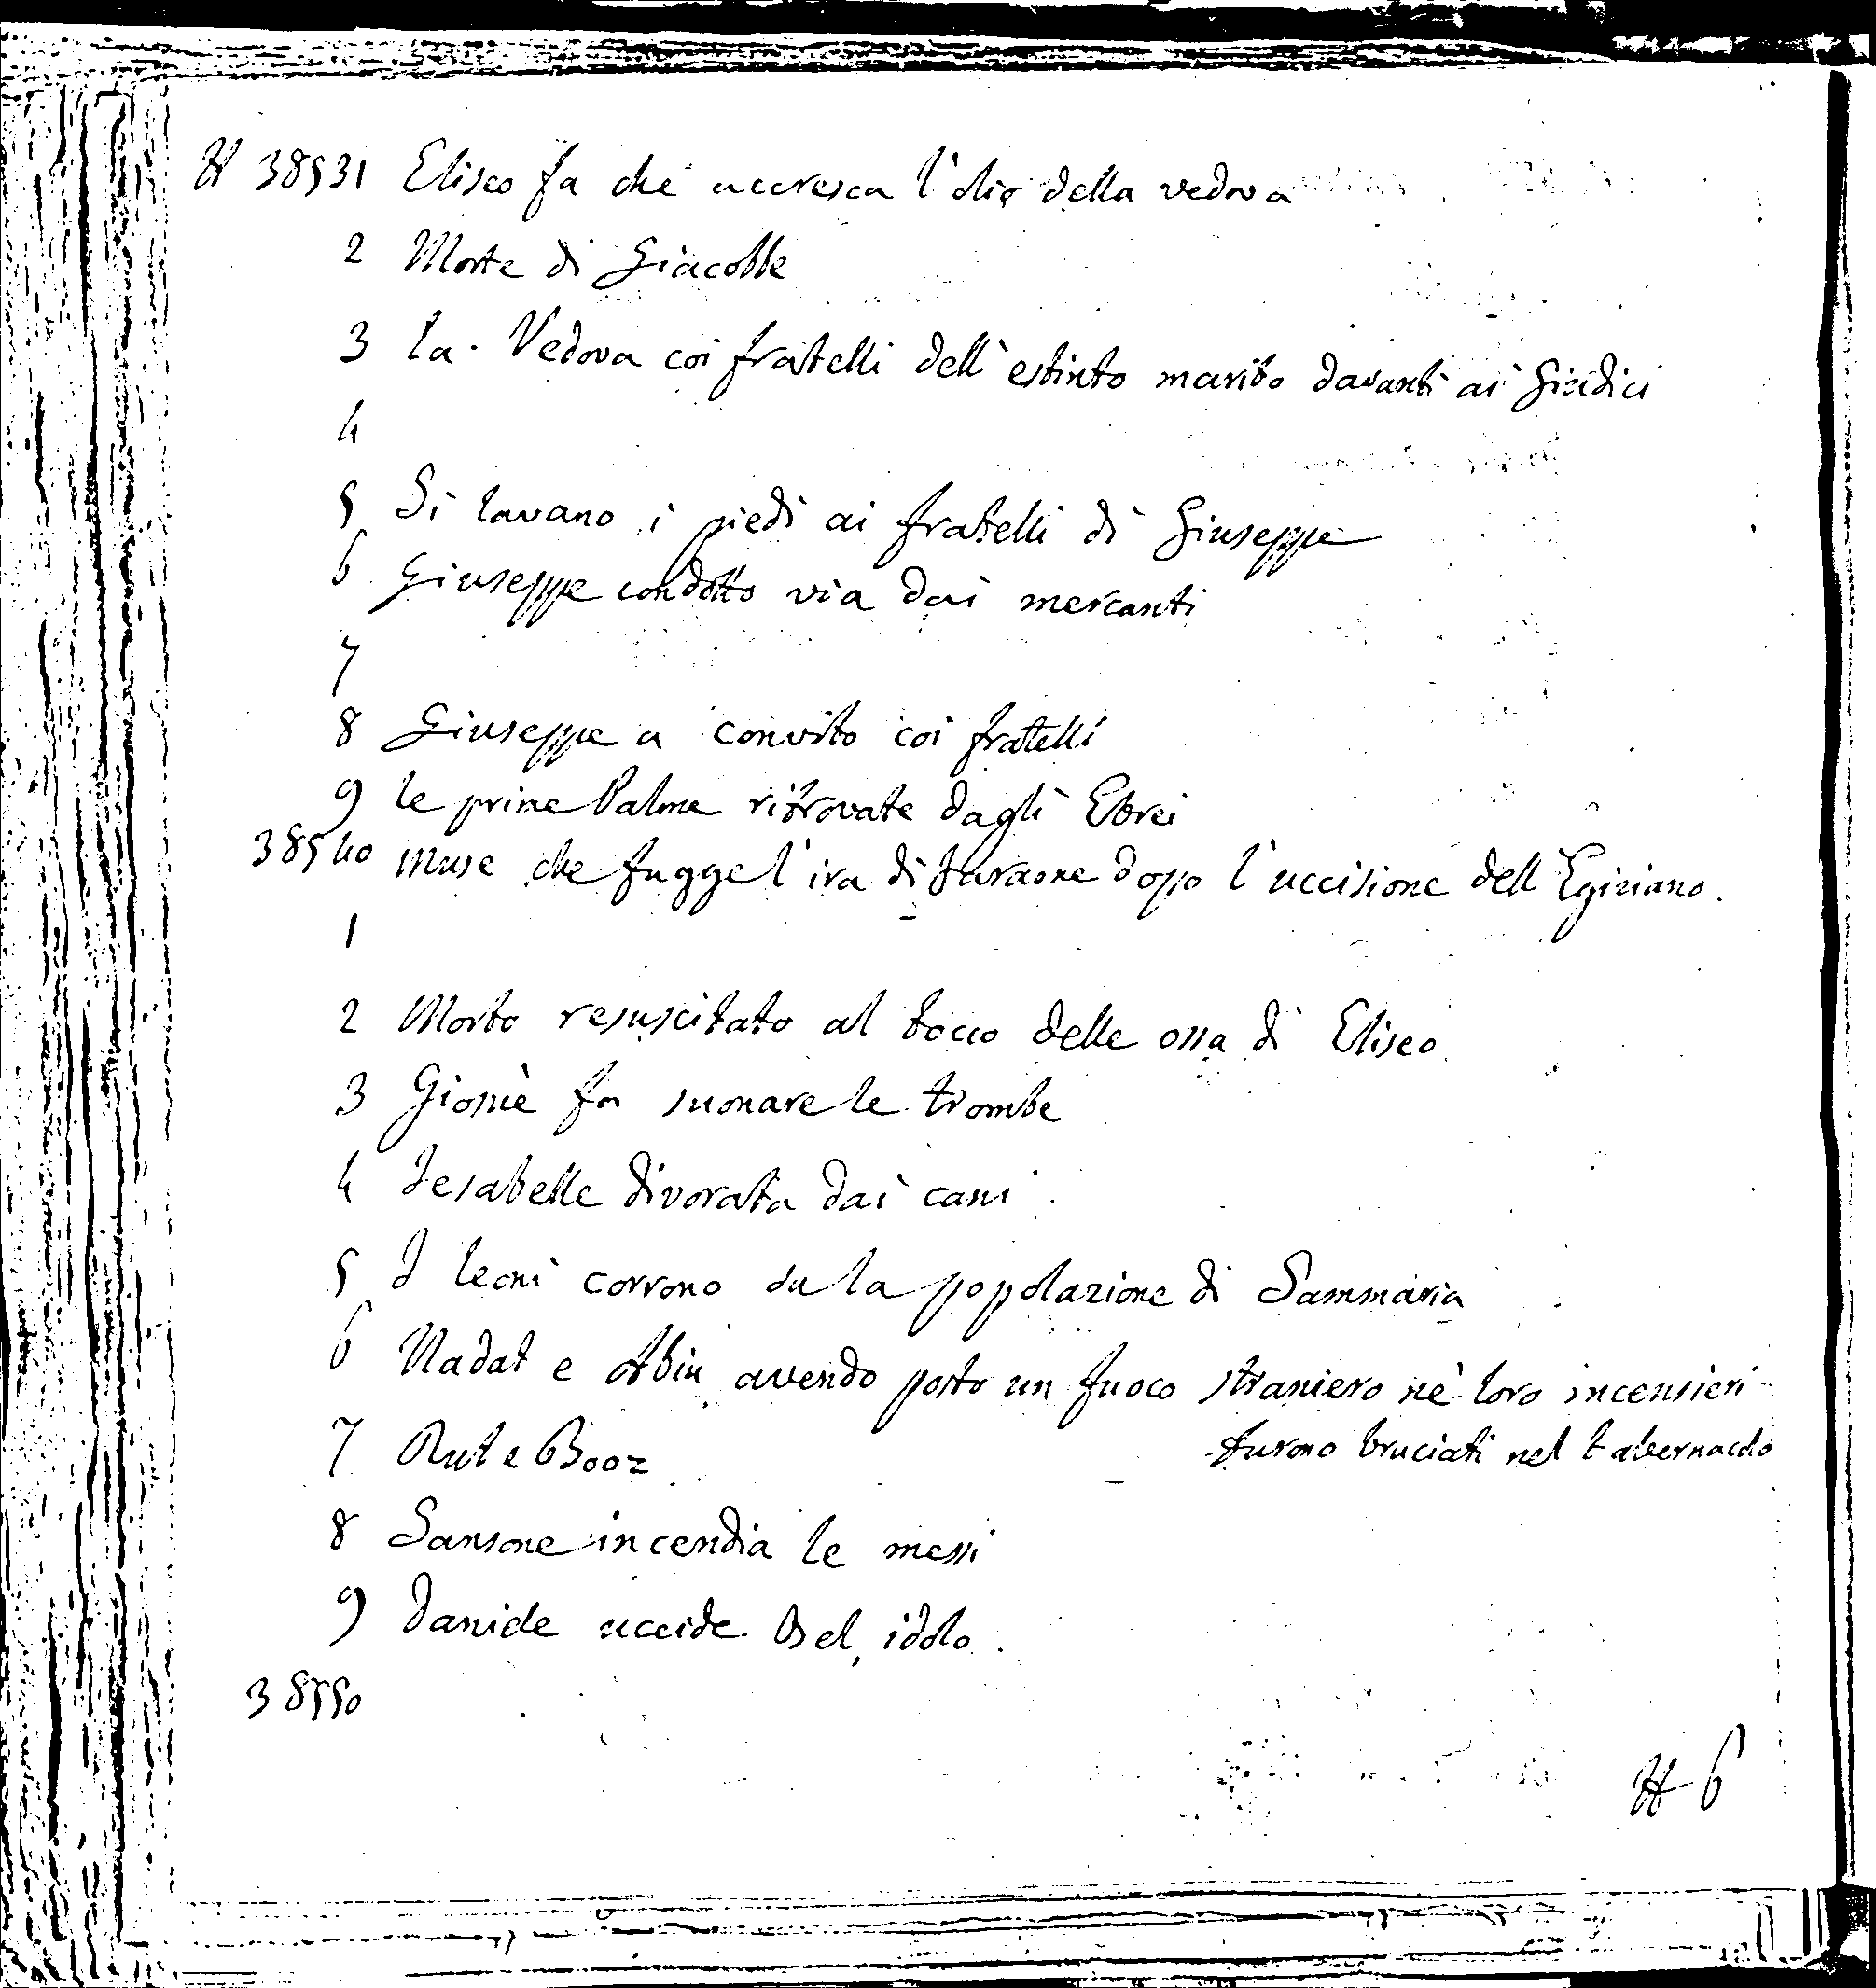 H 38531 Eliseo fa che accresca l'olio della vedova
2 Morte di Giacobbe
3 la Vedova coi fratelli dell'estinto marito davanti ai Giudici
4
5 Si lavano i piedi ai fratelli di Giuseppe
6 Giuseppe condotto via dai mercanti
7
8 Giuseppe a convito coi fratelli
9 le prime Palme ritrovate dagli Ebrei
38540 Mosè che fugge l'ira di faraone dopo l'uccisione dell'Egiziano.
1
2 Morto resuscitato al tocco delle ossa di Eliseo
3 Giosuè fa suonare le trombe
4 Jesabelle divorata dai cani
5 I leoni corrono su la popolazione di Sammaria
6 Nadat e Abiu avendo posto un fuoco straniero ne' loro incensieri
furono bruciati nel tabernacolo
7 Rut e Booz
8 Sansone incendia le messi
9 Daniele uccide Bel, idolo.
38550
H 6